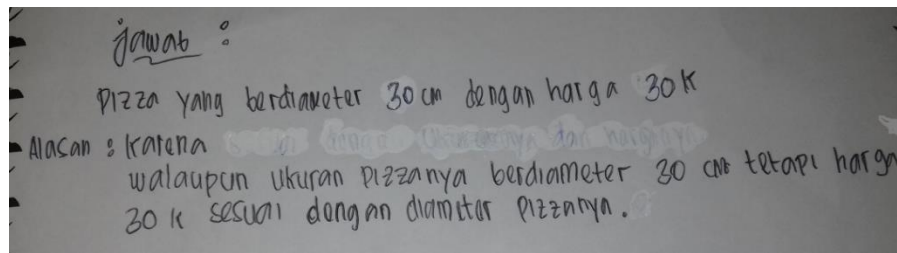 jawab :
Pizza yang berdiameter 30 cm dengan harga 30 k
Alasan : karena
walaupun ukuran pizzanya berdiameter 30 cm tetapi harga
30 k sesuai dengan diameter pizzanya.